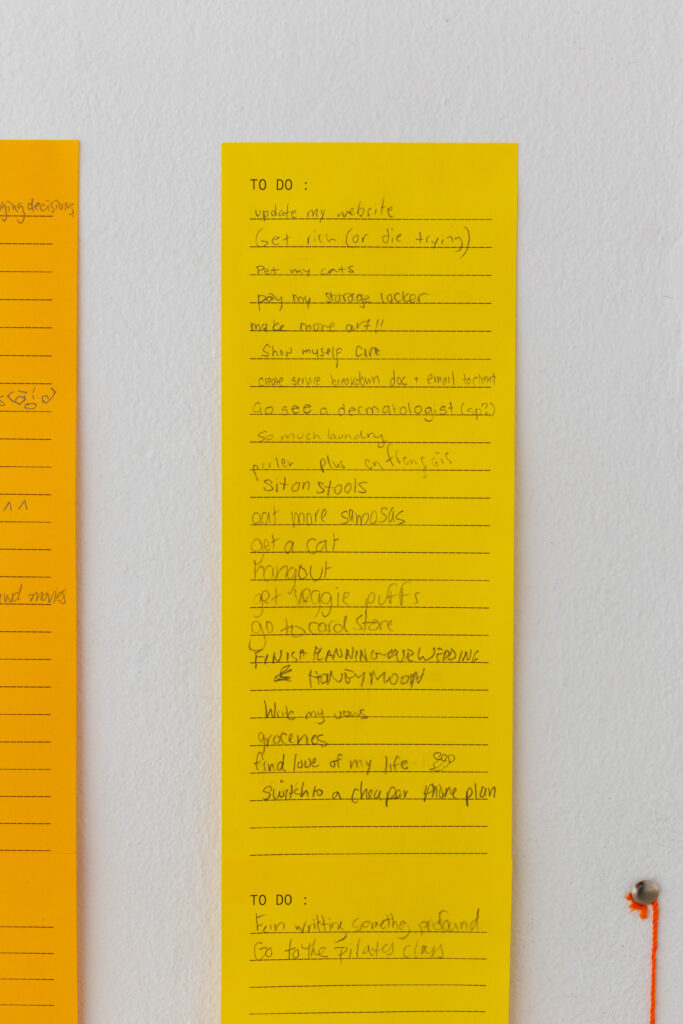 ging decisions
and movies
TO DO :
update my website
Get rich (or die trying)
Pet my cats
pay my storage locker
make more art!!
Show myself care
create service breakdown doc + email to client
Go see a dermatologist (sp?)
So much laundry
parler plus en français
Sit on stools
eat more samosas
get a cat
hangout
get veggie puffs
go to card store
FINISH PLANNING OUR WEDDING
& HONEYMOON
Write my vows
groceries
find love of my life
Switch to a cheaper phone plan
TO DO :
writting something profound
Go to the pilates class